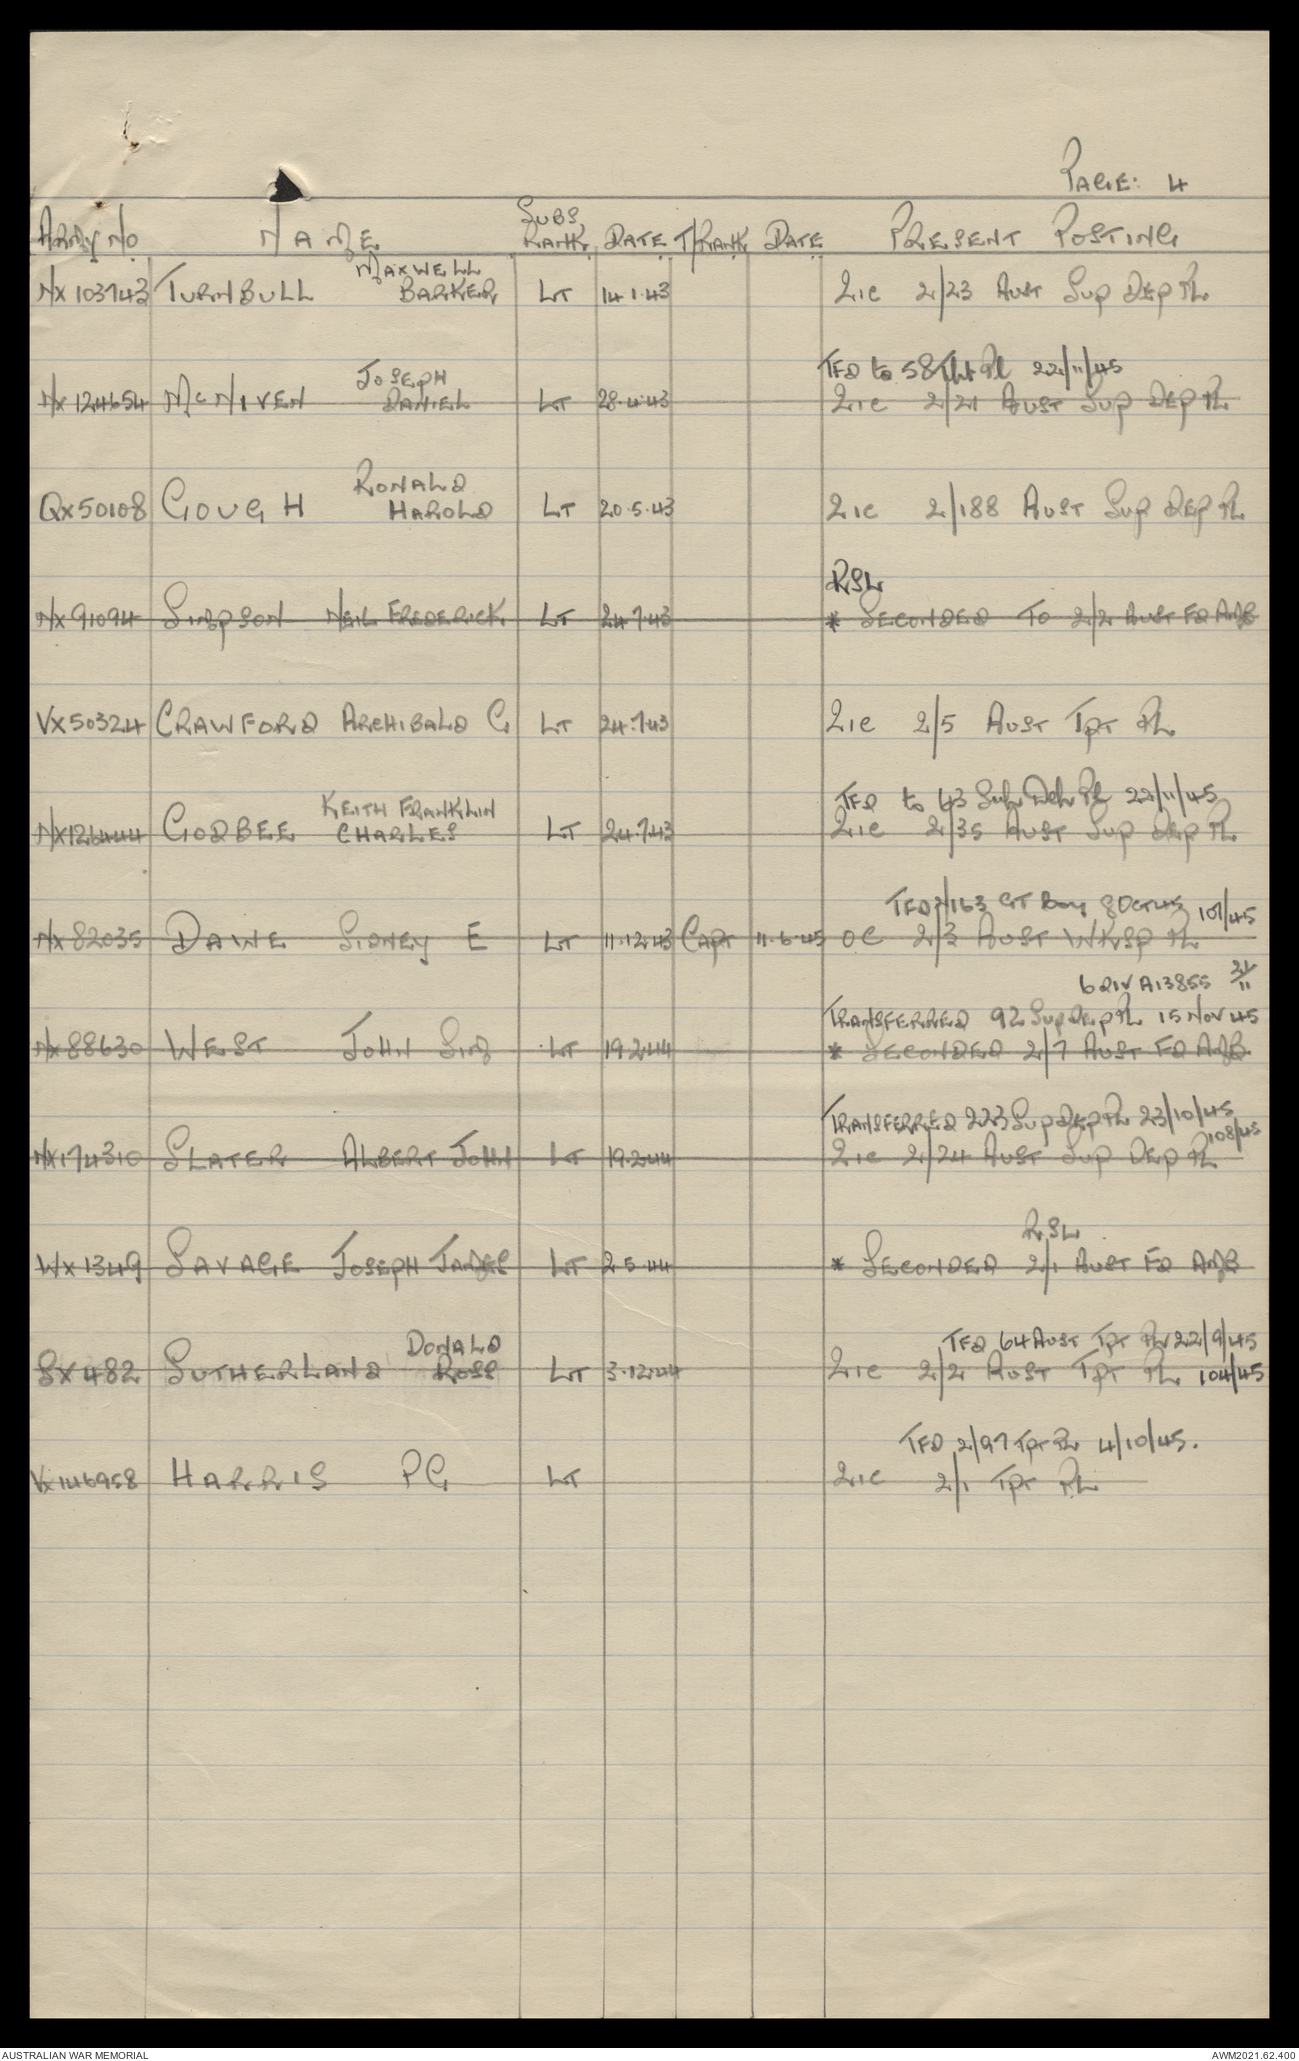 PAGE: 4
ARMY NO NAME SUBS RANK DATE T/RANK DATE PRESENT POSTING
NX 103743 TURNBULL MAXWELL BARKER LT 14.1.43 2ic 2/23 AUST SUP DEP PL
TFD to 58 Tpt Pl 22/11/45
NX 124654 McNIVEN JOSEPH DANIEL LT 28.4.43 2ic 2/21 AUST SUP DEP PL
QX50108 GOUGH RONALD HAROLD LT 20.5.43 2ic 2/188 AUST SUP DEP PL
RSL
NX 91094 SIMPSON NEIL FREDERICK LT 24.7.43 * SECONDED TO 2/2 AUST FD AMB
VX50324 CRAWFORD ARCHIBALD G LT 24.7.43 2ic 2/5 AUST TPT PL
TFD to 63 Sub Deh Pl 22/11/45
NX126444 GODBEE KEITH FRANKLIN CHARLES LT 24.7.43 2ic 2/35 AUST SUP DEP PL
TFD 2/163 GT Coy 8 OCT 45 101/45
NX 82035 DAWE SIDNEY E LT 11.12.43 CAPT 11.6.45 OC 2/3 AUST WKSP PL
6 DIV A13855 21/11
TRANSFERRED 92 SUP DEP PL 15 NOV 45
NX 88630 WEST JOHN SIM LT 19.2.44 * SECONDED 2/7 AUST FD AMB.
TRANSFERRED 223 SUP DEP PL 23/10/45
108/45
NX174310 SLATER ALBERT JOHN LT 19.2.44 2ic 2/24 AUST SUP DEP PL
RSL
WX 1349 SAVAGE JOSEPH JAMES LT 2.5.44 * SECONDED 2/1 AUST FD AMB
TFD 64 AUST TPT PL 22/9/45
SX 482 SUTHERLAND DONALD ROSS LT 3.12.44 2ic 2/2 AUST TPT PL 104/45
TFD 2/97 TPT PL 4/10/45.
VX146958 HARRIS PG LT 2ic 2/1 TPT PL
AUSTRALIAN WAR MEMORIAL AWM2021.62.400